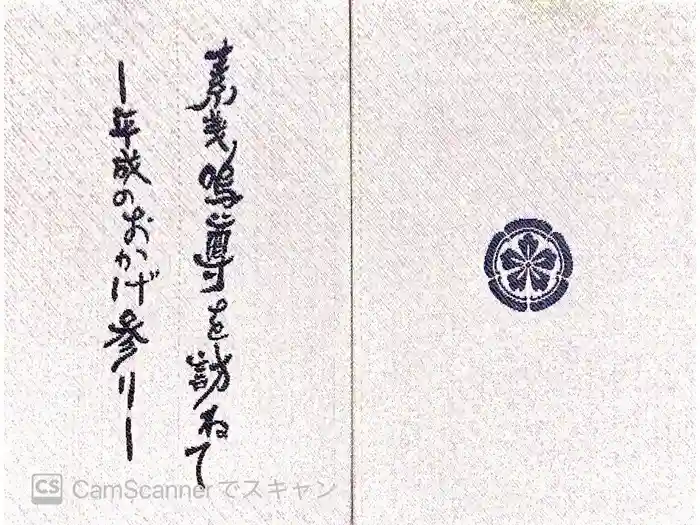 素戔嗚尊を訪ねて
ー平成のおかげ参りー
CS CamScannerでスキャン